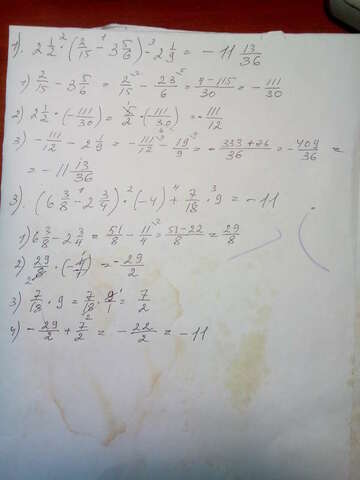 1). 2 1/2 · (2/15 - 3 5/6) - 2 1/9 = - 11 13/36
1) 2/15 - 3 5/6 = 2/15 - 23/6 = 4-115/30 = - 111/30
2) 2 1/2 · (- 111/30) = 5/2 · (111/30) = - 111/12
3) - 111/12 - 2 1/9 = - 111/12 - 19/9 = - 333+76/36 = - 409/36 =
= - 11 13/36
3). (6 3/8 - 2 3/4) · (-4) + 7/18 · 9 = - 11
1) 6 3/8 - 2 3/4 = 51/8 - 11/4 = 51-22/8 = 29/8
2) 29/8 · (- 4/1) = - 29/2
3) 7/18 · 9 = 7/18 · 9/1 = 7/2
4) - 29/2 + 7/2 = - 22/2 = - 11